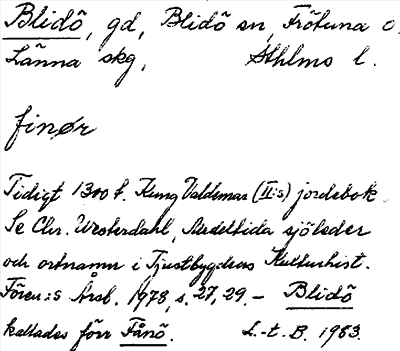 Blidö, gd, Blidö sn, Frötuna o.
Länna skg, Sthlms l.
finør
Tidigt 1300 t. Kung Valdemar (II:s) jordebok.
Se Chr. Westerdahl, Medeltida sjöleder
och ortnamn i Tjustbygdens Kulturhist.
Fören:s Årsb. 1978, s. 27, 29. - Blidö
kallades förr Fånö. L.-t. B. 1983.